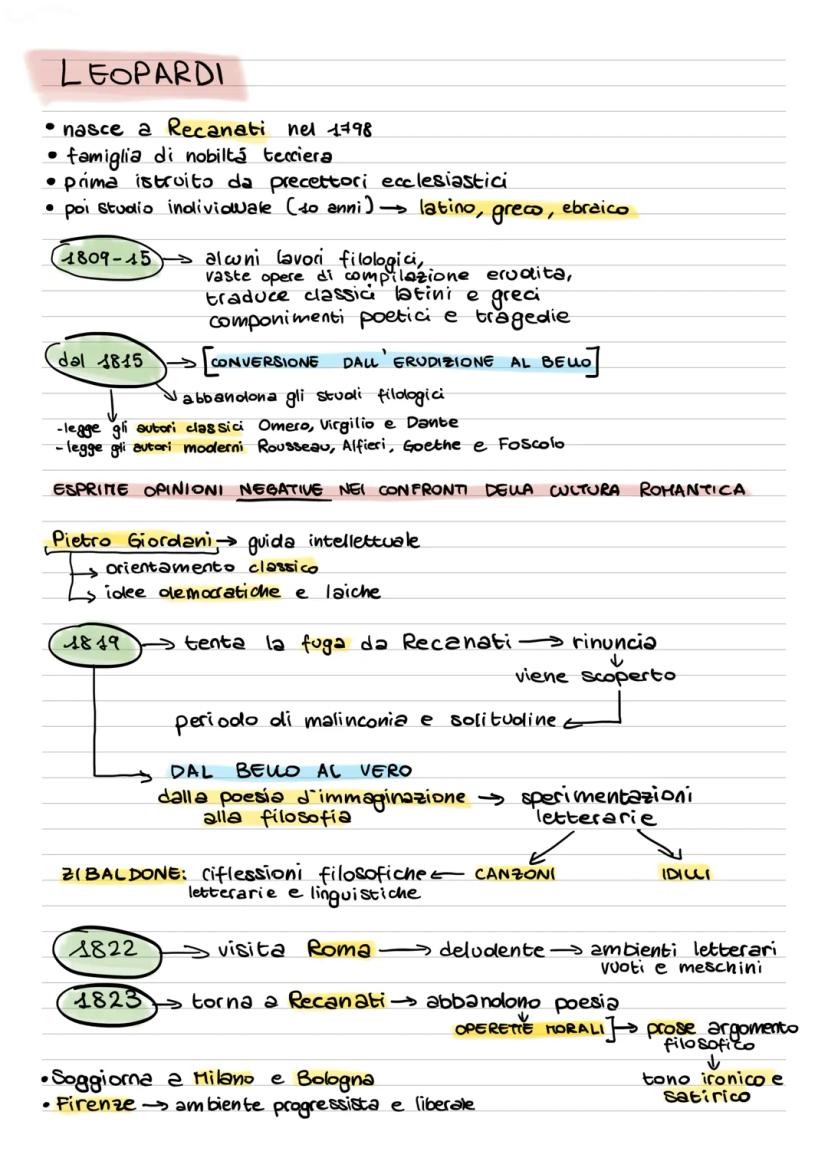 LEOPARDI
• nasce a Recanati nel 1798
• famiglia di nobiltá terriera
• prima istruito da precettori ecclesiastici
• poi studio individuale (10 anni) → latino, greco, ebraico
1809-15 → alcuni lavori filologici,
vaste opere di compilazione erudita,
traduce classici latini e greci
componimenti poetici e tragedie
dal 1815 → [CONVERSIONE DALL'ERUDIZIONE AL BELLO]
↘ abbandona gli studi filologici
-legge gli autori classici Omero, Virgilio e Dante
-legge gli autori moderni Rousseau, Alfieri, Goethe e Foscolo
ESPRIME OPINIONI NEGATIVE NEI CONFRONTI DELLA CULTURA ROMANTICA
Pietro Giordani → guida intellettuale
↳ orientamento classico
↳ idee democratiche e laiche
1819 → tenta la fuga da Recanati → rinuncia
↓
viene scoperto
periodo di malinconia e solitudine ←
DAL BELLO AL VERO
dalla poesia d'immaginazione → sperimentazioni
alla filosofia letterarie
ZIBALDONE: riflessioni filosofiche ← CANZONI IDILLI
letterarie e linguistiche
1822 → visita Roma → deludente → ambienti letterari
vuoti e meschini
1823 → torna a Recanati → abbandono poesia
OPERETTE MORALI] → prose argomento
filosofico
↓
• Soggiorna a Milano e Bologna tono ironico e
satirico
• Firenze → ambiente progressista e liberale